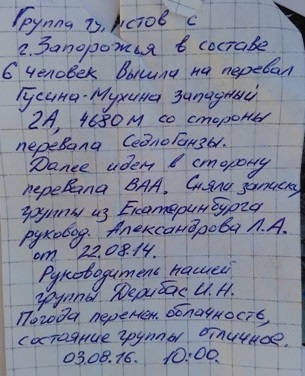 Группа туристов с
г. Запорожья в составе
6 человек вышла на перевал
Гусина-Мухина Западный
2А, 4680м со стороны
перевала Седлоганзы.
Далее идем в сторону
перевала ВАА. Сняли записку
группы из Екатеринбурга
руковод. Александрова Л.А.
от 22.08.14.
Руководитель нашей
группы Дерибас И.Н.
Погода перемен. облачность,
состояние группы отличное.
03.08.16. 10:00.